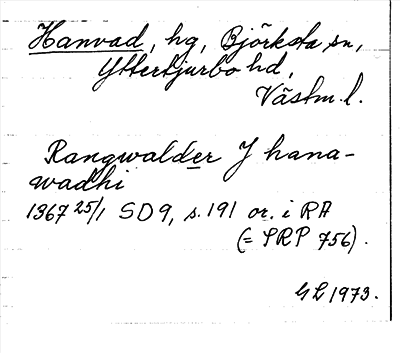 Hanvad, hg, Björksta sn,
Yttertjurbo hd,
Västm. l.
Rangwalder J hana-
wadhi
1367 25/1 SD 9, s. 191 or. i RA
(= SRP 756).
GL 1973.